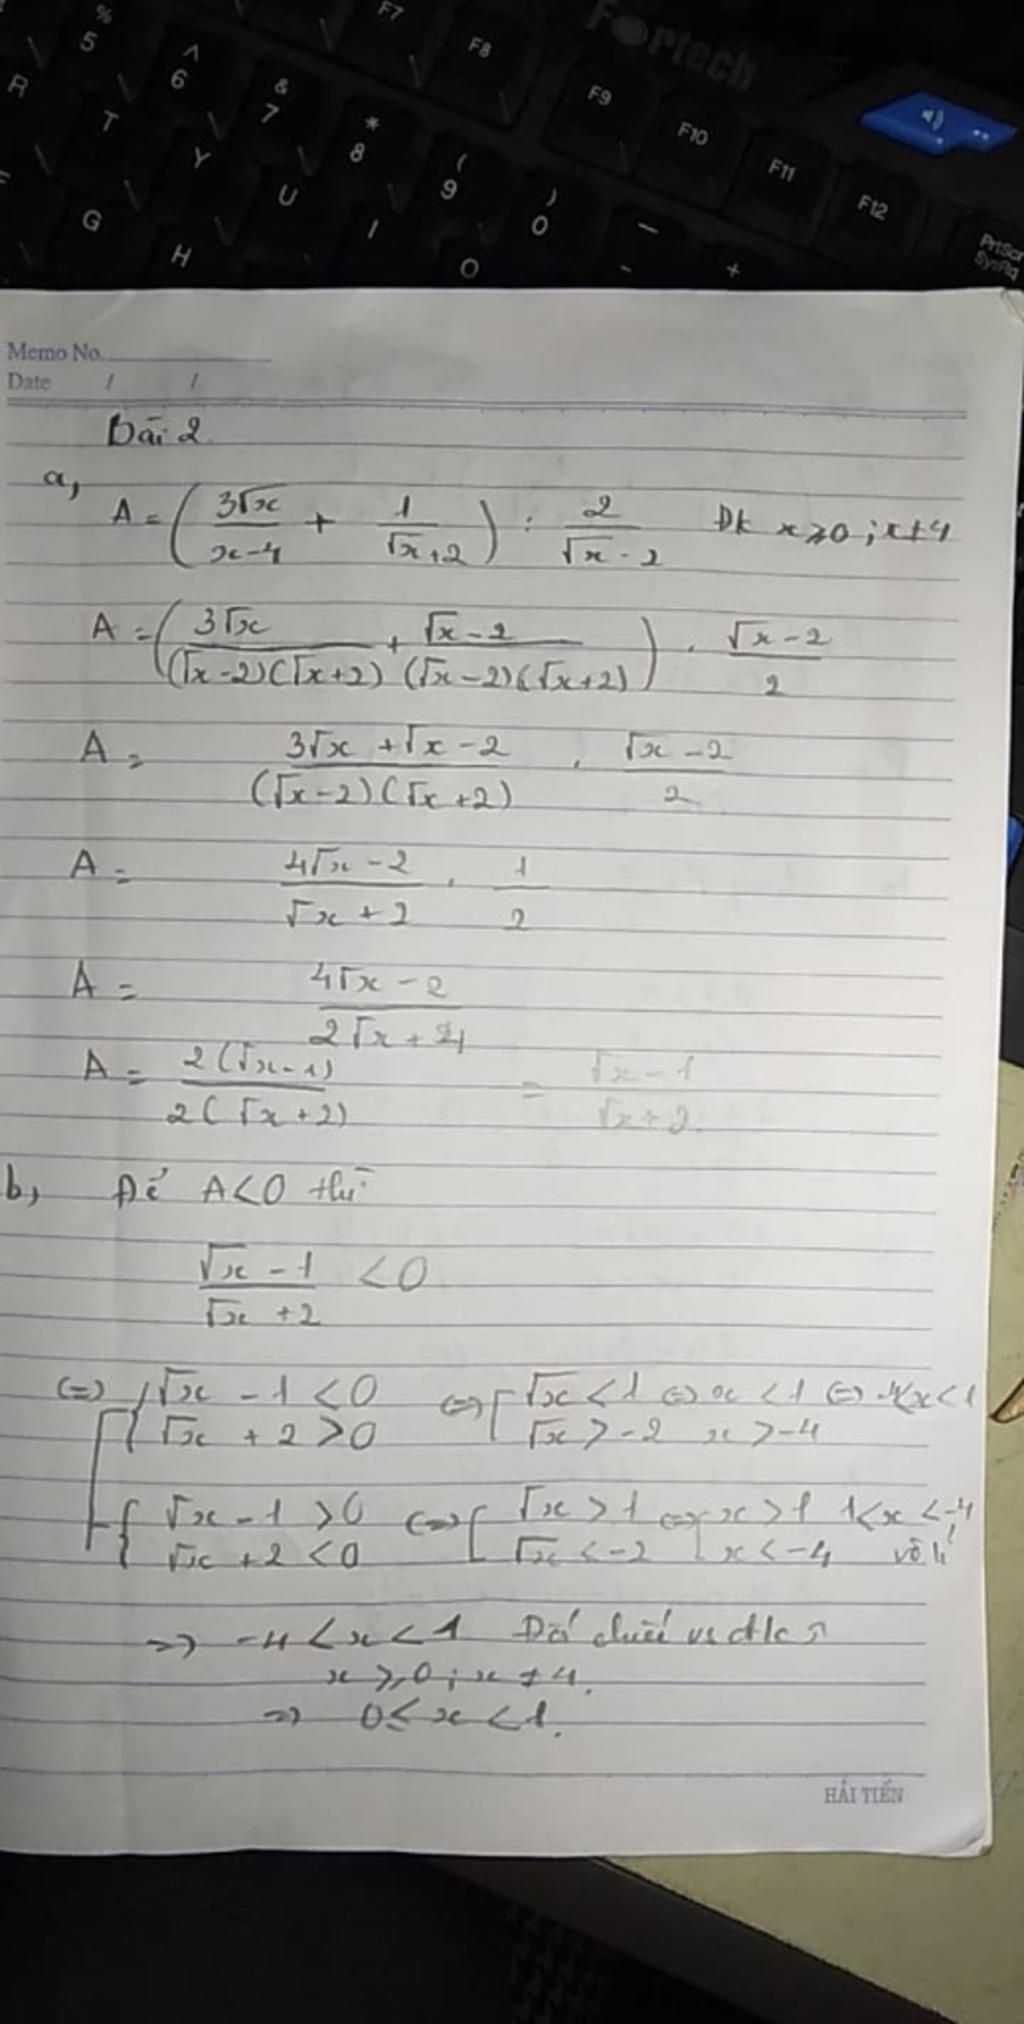 % 5
^ 6
& 7
* 8
( 9
) 0
F7
F8
F9
F10
F11
F12
Fortech
PrtScr
SysRq
R T Y U I O
G H
Memo No.
Date / /
Bài 2
a, A = (3√x/(x-4) + 1/(√x+2)) : 2/(√x-2) Đk x⩾0; x≠4
A = (3√x/((√x-2)(√x+2)) + (√x-2)/((√x-2)(√x+2))) . (√x-2)/2
A = (3√x+√x-2)/((√x-2)(√x+2)) . (√x-2)/2
A = (4√x-2)/(√x+2) . 1/2
A = (4√x-2)/(2√x+4)
A = 2(√x-1)/2(√x+2) = (√x-1)/(√x+2)
b, Để A<0 thì
(√x-1)/(√x+2) <0
(=) {√x-1<0 (=) [√x<1 (=) x<1 (=) -4<x<1
{√x+2>0 [√x>-2 x>-4
{√x-1>0 (=) [√x>1 (=) [x>1 1<x<-4
{√x+2<0 [√x<-2 [x<-4 vô lí
=> -4<x<1 Đối chiếu vs đk
x⩾0; x≠4.
=> 0≤x<1.
HẢI TIẾN